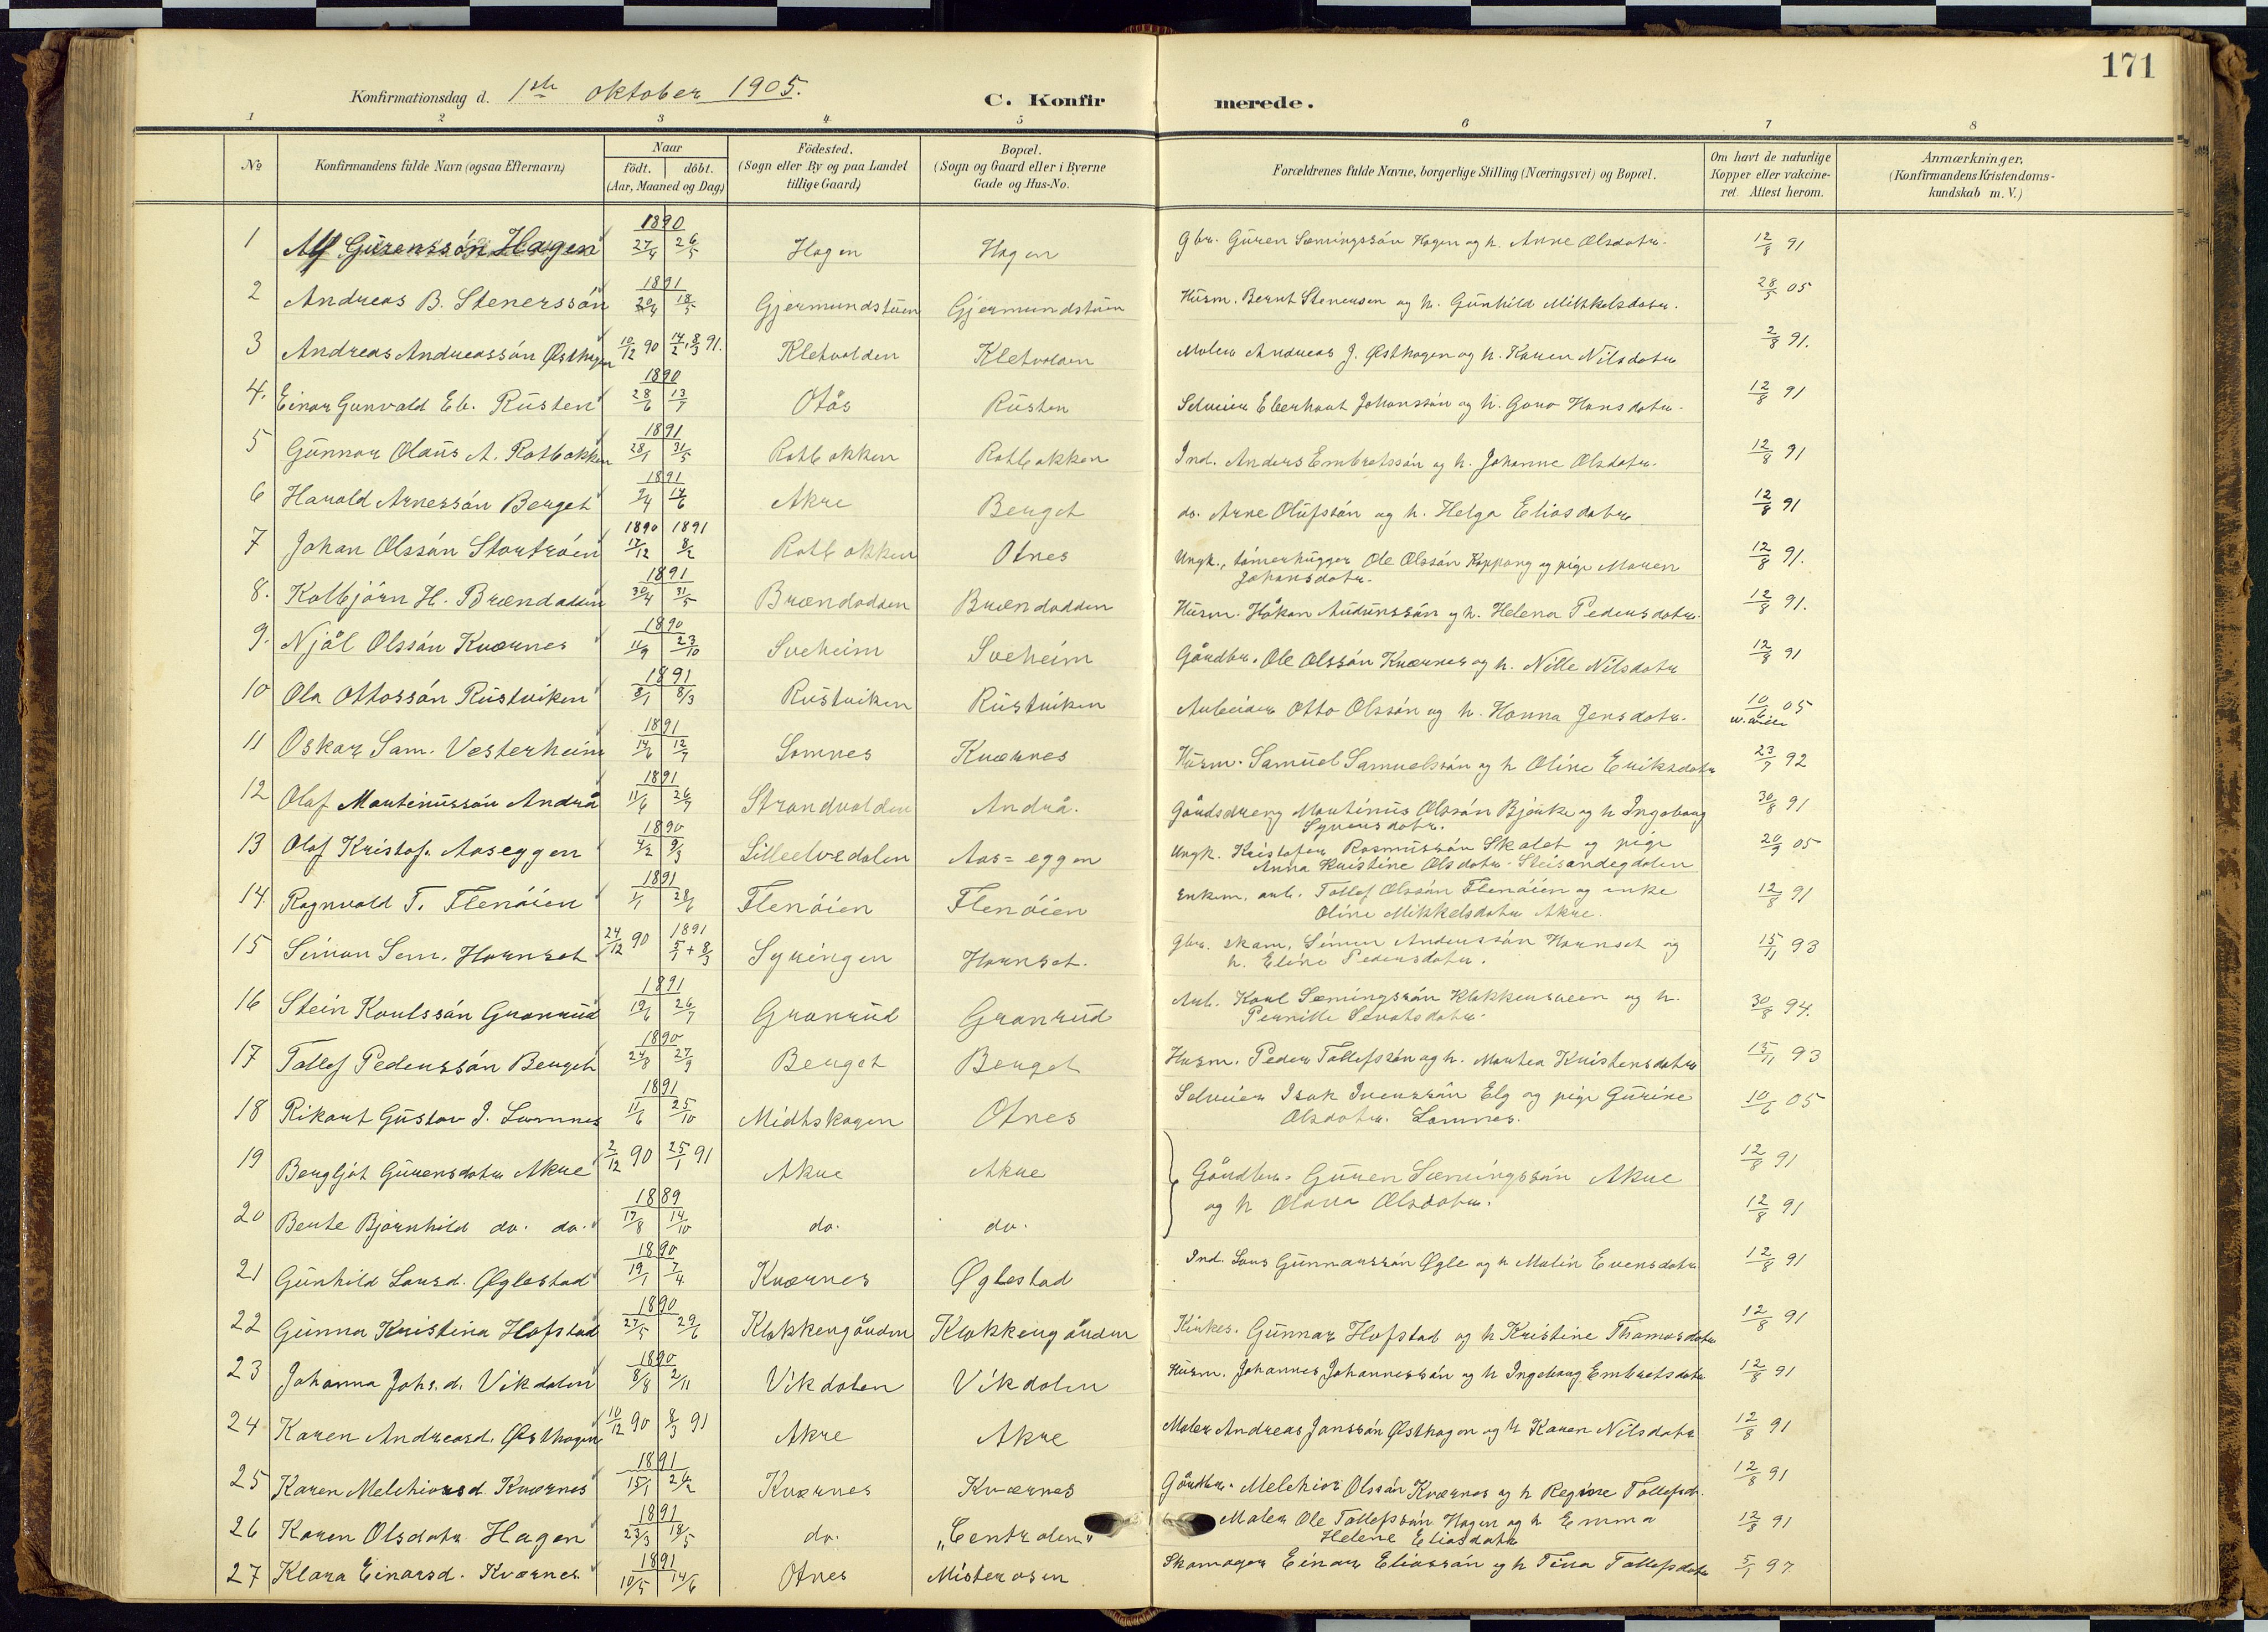 171
Konfirmationsdag d. 1ste oktober 1905. C. Konfir merede.
1 2 3 4 5 6 7 8
No Konfirmandens fulde Navn (ogsaa Efternavn) Naar født. døbt. (Aar, Maaned og Dag) Födested. (Sogn eller By og paa Landet tillige Gaard) Bopæl. (Sogn og Gaard eller i Byerne Gade og Hus-No. Forældrenes fulde Navne, borgerlige Stilling (Næringsvei) og Bopæl. Om havt de naturlige Kopper eller vakcineret. Attest herom. Anmærkninger, (Konfirmandens Kristendomskundskab m. V.)
1 Alf Gürenssón Hagen 1890 27/4 26/5 Hagen Hagen Gbr. Güren Sæmingssón Hagen og h. Anne Olsdatr. 12/8 91
2 Andreas B. Stenerssón 1891 20/4 18/5 Gjermundstuen Gjermundstuen Husm. Bernt Stenersen og h. Gunhild Mikkelsdatr. 28/5 05
3 Andreas Andreassón Østhagen 10/12 90 14/2, 8/3 91. Kletvolden Kletvolden Maler Andreas J. Østhagen og h. Karen Nilsdatr 2/8 91.
4. Einar Gunvald Eb. Rusten 1890 28/6 13/7 Otås Rusten Selveier Eberhart Johanssón og h. Goro Hansdatr. 12/8 91
5 Gunnar Olaus A. Rotbakken 1891 28/1 31/5 Rotbakken Rotbakken Ind. Anders Embretssón og h. Johanne Olsdatr. 12/8 91
6 Harald Arnessón Berget 1891 2/4 14/6 Akre Berget do. Arne Olufssón og h. Helga Eliasdatr 12/8 91
7 Johan Olssón Stortróen 1890 1891 17/12 8/2 Rotbakken Otnes Ungk., tómerhugger Ole Olssón Koppang og pige Maren Johansdatr. 12/8 91.
8. Kolbjórn H. Brændodden 1891 30/4 31/5 Brændodden Brændodden Husm. Håkon Audunssón og h. Helena Pedersdatr. 12/8 91.
9. Njål Olssón Kværnes 1890 11/9 23/10 Sveheim Sveheim Gårdbr. Ole Olssón Kværnes og h. Nille Nilsdatr 12/8 91
10 Ola Ottossón Rustviken 1891 8/1 8/3 Rustviken Rustviken Arbeider Otto Olssón og h. Hanna Jensdatr. 10/6 05
11 Oskar Sam. Vesterheim 1891 14/6 12/7 Lomnes Kværnes Husm. Samuel Samuelssón og h Oline Eriksdatr 23/7 92
12 Olaf Martinussón Andrå 1891 11/6 26/7 Strandvolden Andrå. Gårdsdreng Martinus Olssón Bjórke og h Ingeborg Syversdatr. 30/8 91
13 Olaf Kristof. Aaseggen 1890 4/2 9/3 Lilleelvedalen Aas=eggen Ungk. Kristofer Rasmussón Skalet og pige Anna Kristine Olsdatr. 20/9 05
14 Ragnvald T. Flenóien 1891 1/1 28/6 Flenóien Flenóien Enkem. arb. Tollef Olssón Flenóien og enke Oline Mikkelsdatr Akre. 12/8 91
15 Simon Sem. Hornset 24/12 90 1891 5/1 + 8/3 Syringen Hornset. Gbr. skom. Simen Anderssón Hornset og h. Eline Pedersdatr. 15/11 93
16 Stein Karlssón Granrud 1891 19/6 26/7 Granrud Granrud Arb. Karl Sæmingssón Klokkersveen og h. Pernille Sevatsdatr. 30/8 94.
17 Tollef Pederssón Berget 1890 24/8 27/9 Berget Berget Husm. Peder Tollefssón og h. Martea Kristensdatr 15/11 93
18 Rikart Gustav I. Lomnes 1891 11/6 25/10 Midtskogen Otnes Selveier Isak Iverssón Elg og pige Gurine Olsdatr. Lomnes. 10/6 05
19 Bergljot Gurensdatr Akre 2/12 90 25/1 91 Akre Akre Gårdbr. Guren Sæmingssón Akre 12/8 91
20 Bente Bjórnhild do. do. 1889 17/8 14/10 do. do. og h Olava Olsdatr. 12/8 91
21 Gunhild Larsd. Øglestad 1890 19/1 7/4 Kværnes Øglestad Ind. Lars Gunnarssón Øgle og h Malin Evensdatr 12/8 91
22 Gunna Kristina Hofstad 1890 27/5 29/6 Klokkergården Klokkergården Kirkes. Gunnar Hofstad og h Kristine Thomasdatr 12/8 91
23 Johanna Johs. d. Vikdalen 1890 8/8 2/11 Vikdalen Vikdalen Husm. Johannes Johannessón og h Ingeborg Embretsdatr 12/8 91
24 Karen Andreasd. Østhagen 10/12 90 8/3 91 Akre Akre Maler Andreas Janssón Østhagen og h Karen Nilsdatr 12/8 91
25 Karen Melchiorsd. Kværnes 1891 15/1 24/2 Kværnes Kværnes Gårdbr. Melchior Olssón Kværnes og h Regine Tollefsd. 12/8 91
26 Karen Olsdatr Hagen 1891 23/3 18/5 do. „Centralen" Maler Ole Tollefssón Hagen og h Emma Helene Eliasdatr 12/8 91
27 Klara Einarsd. Kværnes. 1891 10/5 14/6 Otnes Misterosen Skomager Einar Eliassón og h Tina Tollefsdatr 5/1 97.